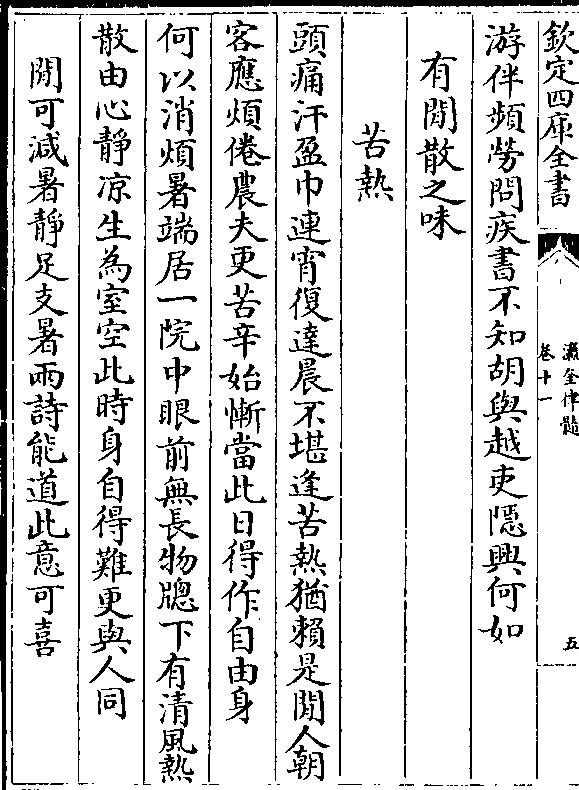 欽定四庫全書
瀛奎律髓
卷十一
五
游伴頻勞問疾書不知胡與越吏隱興何如
有閒散之味
苦熱
頭痛汗盈巾連宵復達晨不堪逢苦熱猶賴是閒人朝
客應煩倦農夫更苦辛始慚當此日得作自由身
何以消煩暑端居一院中眼前無長物牕下有清風熱
散由心靜凉生為室空此時身自得難更與人同
閒可減暑靜足支暑兩詩能道此意可喜